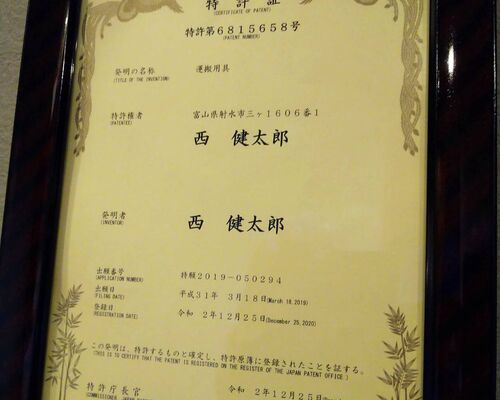 特許証
(CERTIFICATE OF PATENT)
特許第6815658号
(PATENT NUMBER)
発明の名称 運搬用具
(TITLE OF THE INVENTION)
特許権者 富山県射水市三ヶ1606番1
(PATENTEE)
西 健太郎
発明者 西 健太郎
(INVENTOR)
出願番号 特願2019-050294
(APPLICATION NUMBER)
出願日 平成31年 3月18日(March 18,2019)
(FILING DATE)
登録日 令和 2年12月25日(December 25,2020)
(REGISTRATION DATE)
この発明は、特許するものと確定し、特許原簿に登録されたことを証する。
(THIS IS TO CERTIFY THAT THE PATENT IS REGISTERED ON THE REGISTER OF THE JAPAN PATENT OFFICE.)
特許庁長官 令和 2年12月25日
(COMMISSIONER, JAPAN